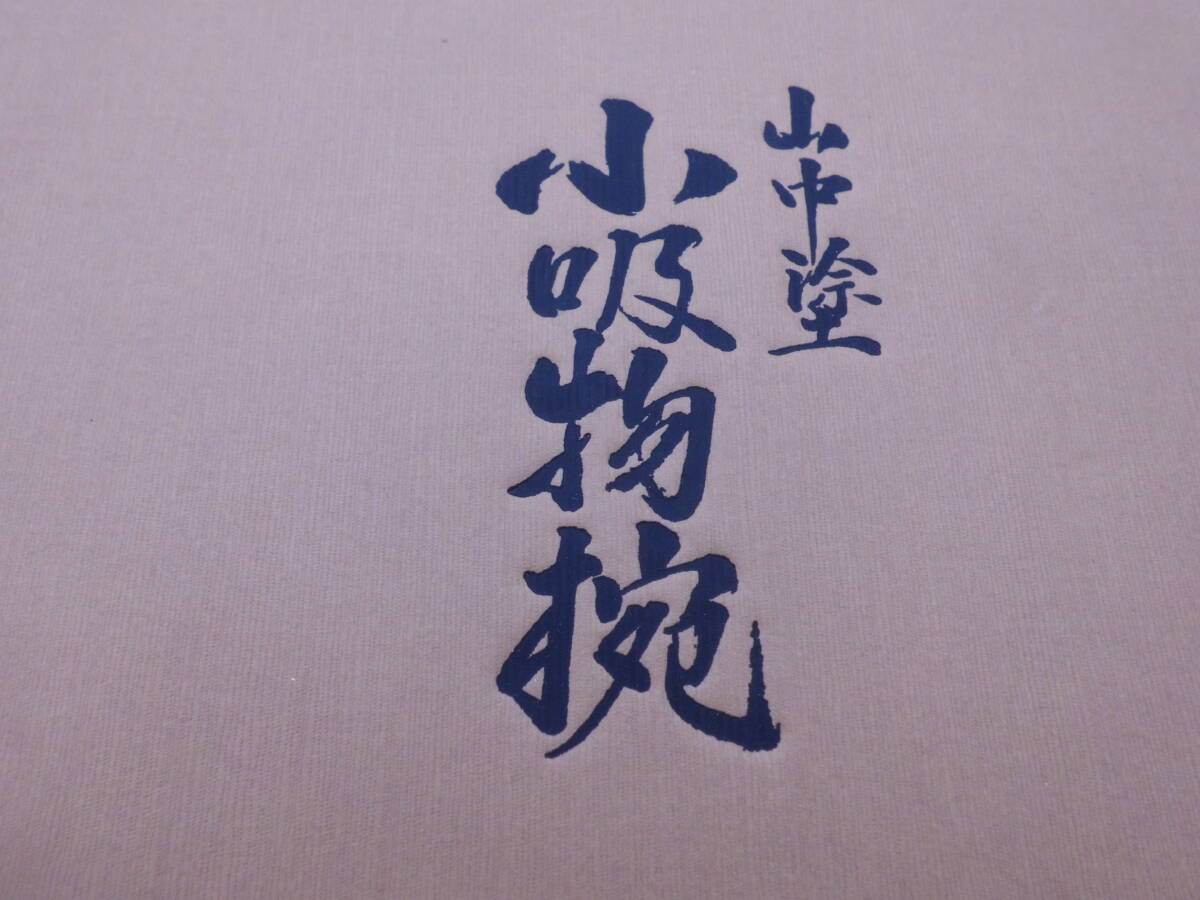 山中塗
小吸物椀